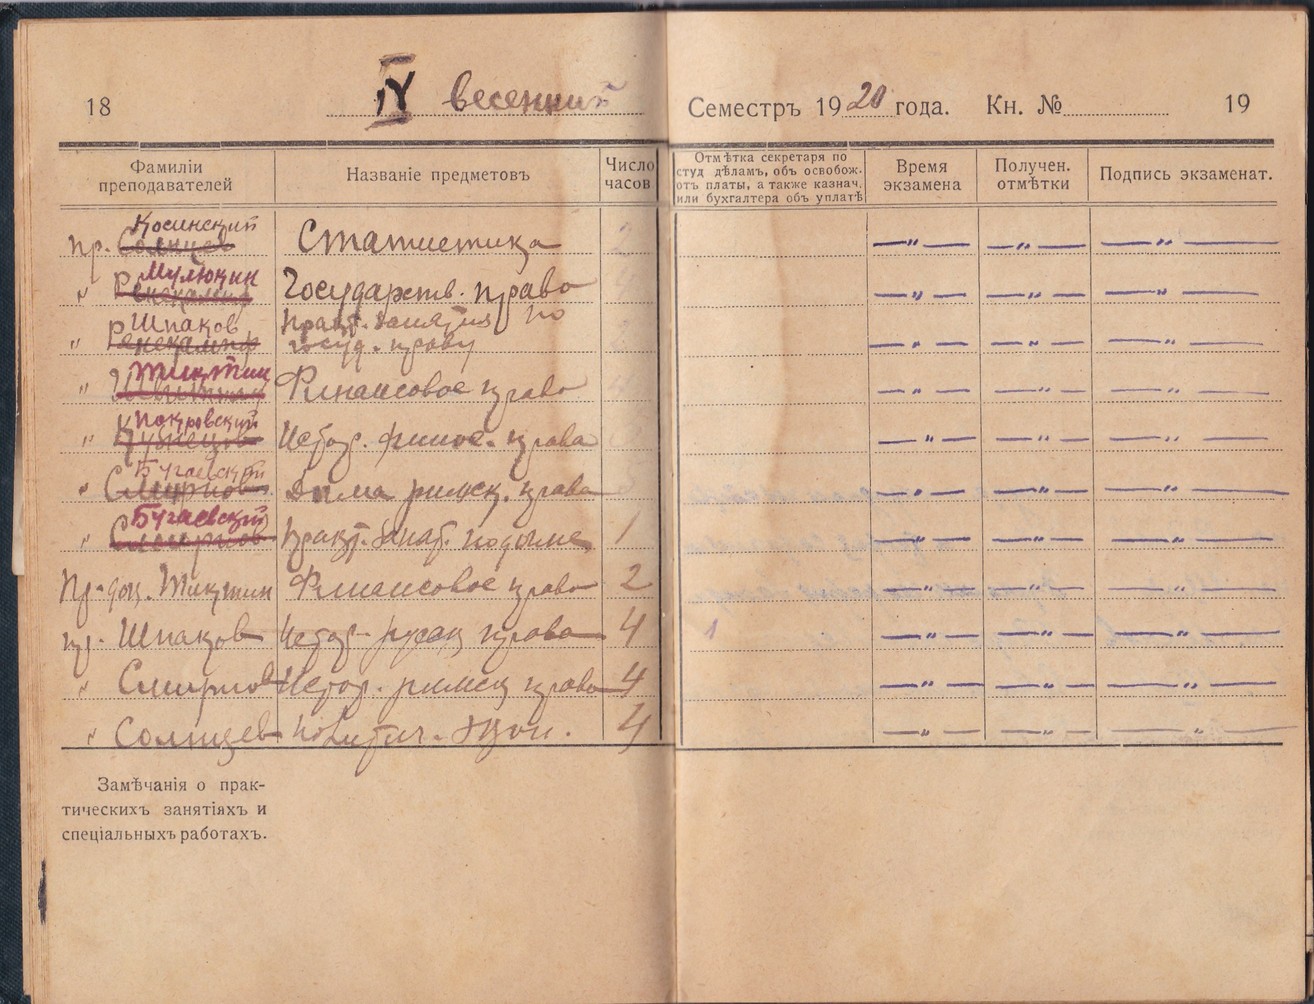 18
IV весенній
Семестръ 1920 года. Кн. №
19
Фамиліи преподавателей
Названіе предметовъ
Число часовъ
Отмѣтка секретаря по
студ дѣламъ, объ освобож-
отъ платы, а также казнач.
или бухгалтера объ уплатѣ
Время экзамена
Получен. отмѣтки
Подпись экзаменат.
Косинский
пр. Солнцев Статистика 2
Мулюкин
" Ренекампф Государств. право
Шпаков Практ. занятия по
" Ренекампф госуд. праву
Тиктин
" Финансовое право
Покровский
" Кузнецов Истор. филос. права
Бугаевский
" Смирнов Догма римск. права
Бугаевский
" Смирнов Практ. занят. по догме 1
Пр-доц. Тиктин Финансовое право 2
пр. Шпаков Истор. русск права 4
" Смирнов Истор. римск права 4
" Солнцев Политич. экон. 4
Замѣчанія о прак-
тическихъ занятіяхъ и
спеціальныхъ работахъ.